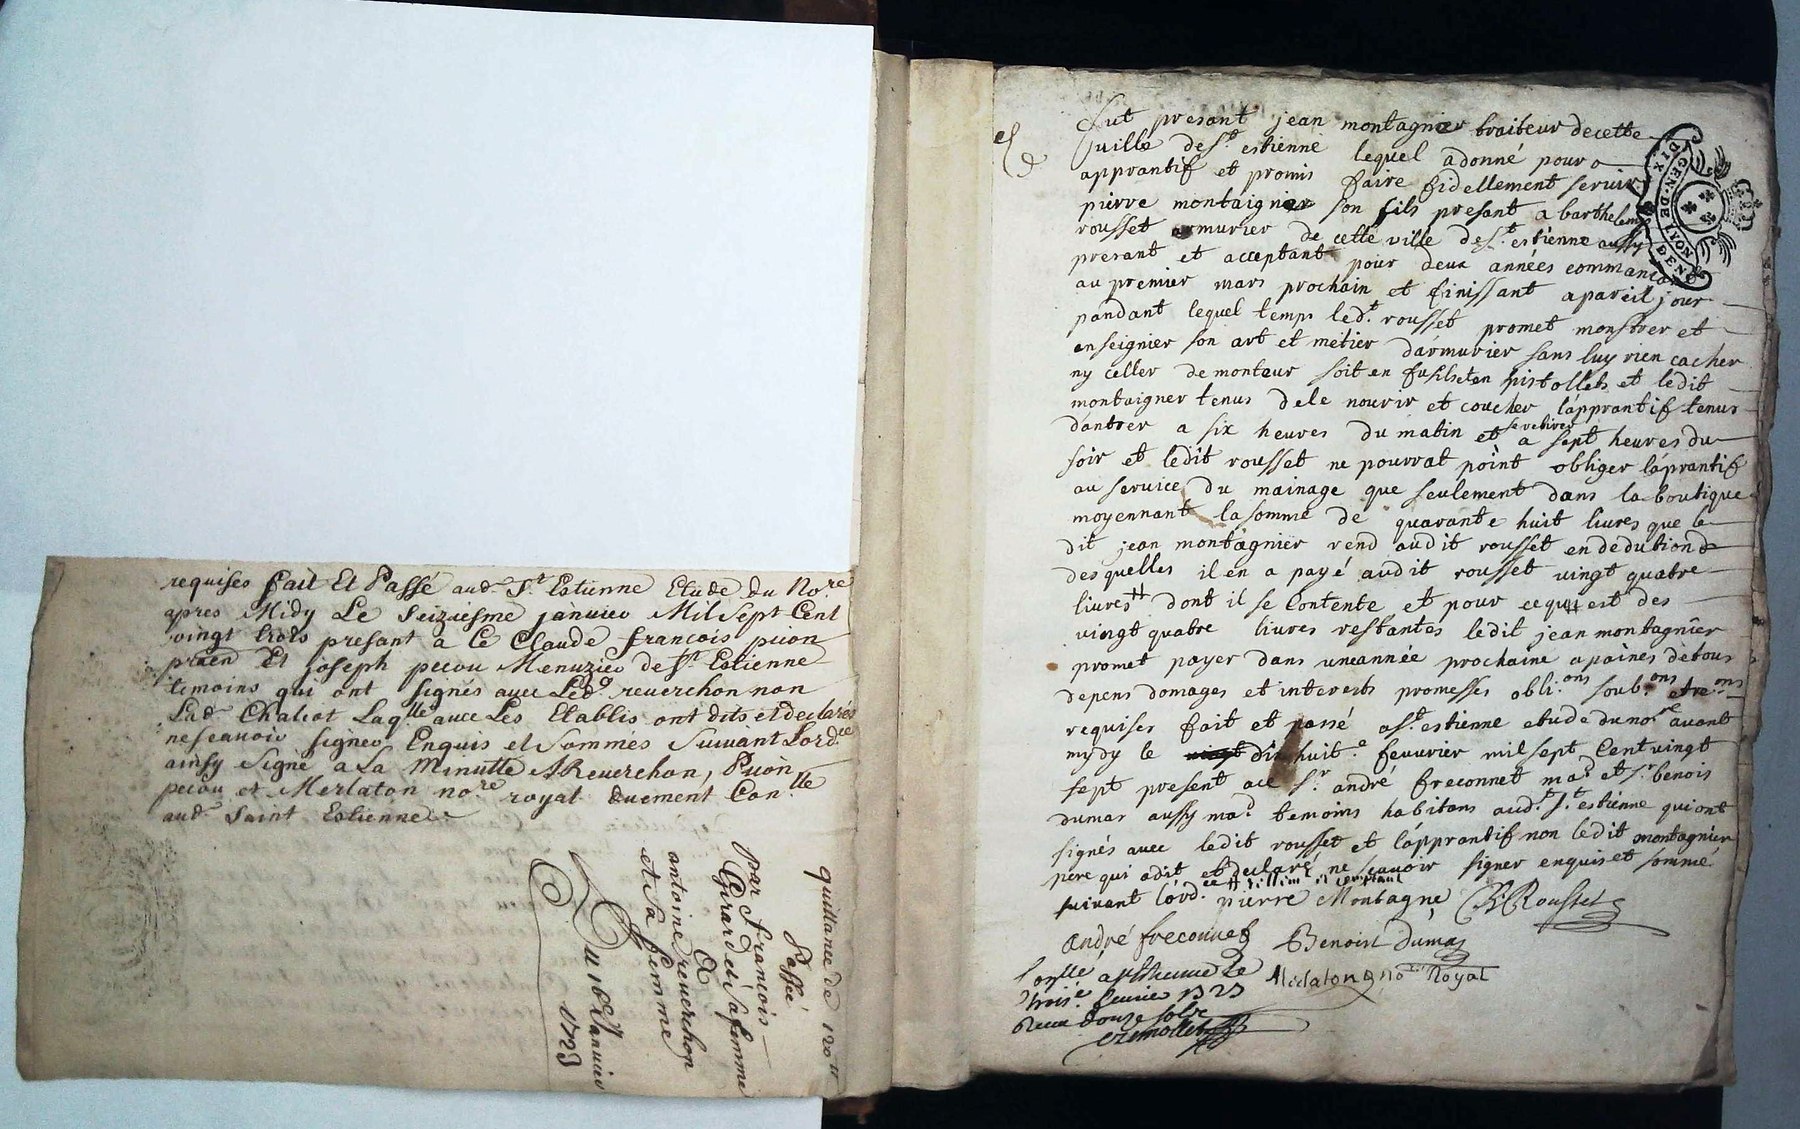 requises fait Et Passé aud. St. Estienne Etude du No.re
apres Midy Le Seiziesme janvier Mil sept Cent
vingt trois presant a Ce Claude françois puion
praen Et joseph pecou Menuzier de St. Estienne
temoins qui ont signés avec Led. reuerchon non
Lad. Chaleat Laq.lle avec Les Etablis ont dits et declarés
ne scauoir signer Enquis et Sommés Suiuant Lord.ce
ainsy Signé a La Minutte AReuerchon, Puion
pecou et Merlaton no.re royal duement Con.lle
aud. Saint Estienne
quittance de 120 tt
Passée
par francois
Girard et sa femme
A
antoine reuerchon
et sa femme
Du 16e Januier
1723
fut presant jean montagnier traiteur decette
uille de St. estienne lequel adonné pour
apprantif et promis faire fidellement seruir
pierre montaignier son fils presant a barthelemy
rousset armurier de cette ville de St. estienne aussy
presant et acceptant pour deux années commançant
au premier mars prochain et finissant apareil jour
pandant lequel temps led.t rousset promet monstrer et
enseignier son art et métier d'armurier sans luy rien cacher
ny celler demonteur soit en fusils et en pistollets et ledit
montaigner tenus dele nourir et coucher l'apprantif tenus
dantrer a six heures du matin et se retirer a sept heures du
soir et ledit rousset ne pourrat point obliger l'aprantif
au seruice du mainage que seulement dans la boutique
moyennant la somme de quarante huit liures que le
dit jean montagnier rend audit rousset en dedution
desquelles il en a payé audit rousset vingt quatre
liures tt dont il se Contente et pour cequi est des
vingt quatre liures restantes ledit jean montagnier
promet payer dans uneannée prochaine apaines detous
depens domages et interests promesses obli.ons soub.ons et re.ons
requises fait et passé a St. estienne etude du no.re auant
mydy le dix huit.e feuurier mil sept Cent vingt
sept present ace Sr. andré freconnet ma.d et Sr. benois
dumas aussy ma.d temoins habitans aud.t St. estienne qui ont
signés avec ledit rousset et l'apprantif non ledit montagnier
pere qui adit et declaré ne scauoir signer enquis et sommé
suiuant l'ord.ce
pierre Montagne B Rousset
André freconnet Benoist Dumas
Merlaton no.re Royal
DIX
GEN. DE LYON
DEN